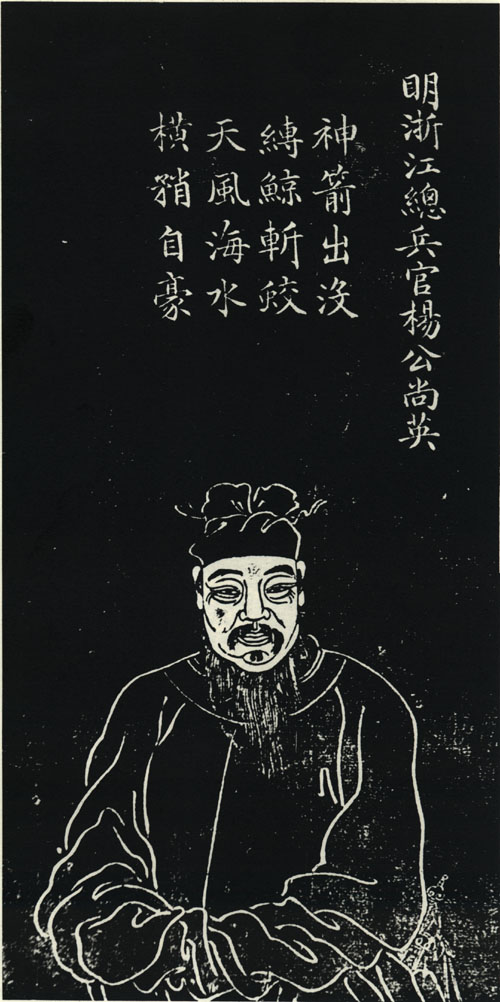 明浙江總兵官楊公尚英
神箭出没
縛鯨斬蛟
天風海水
橫矟自豪